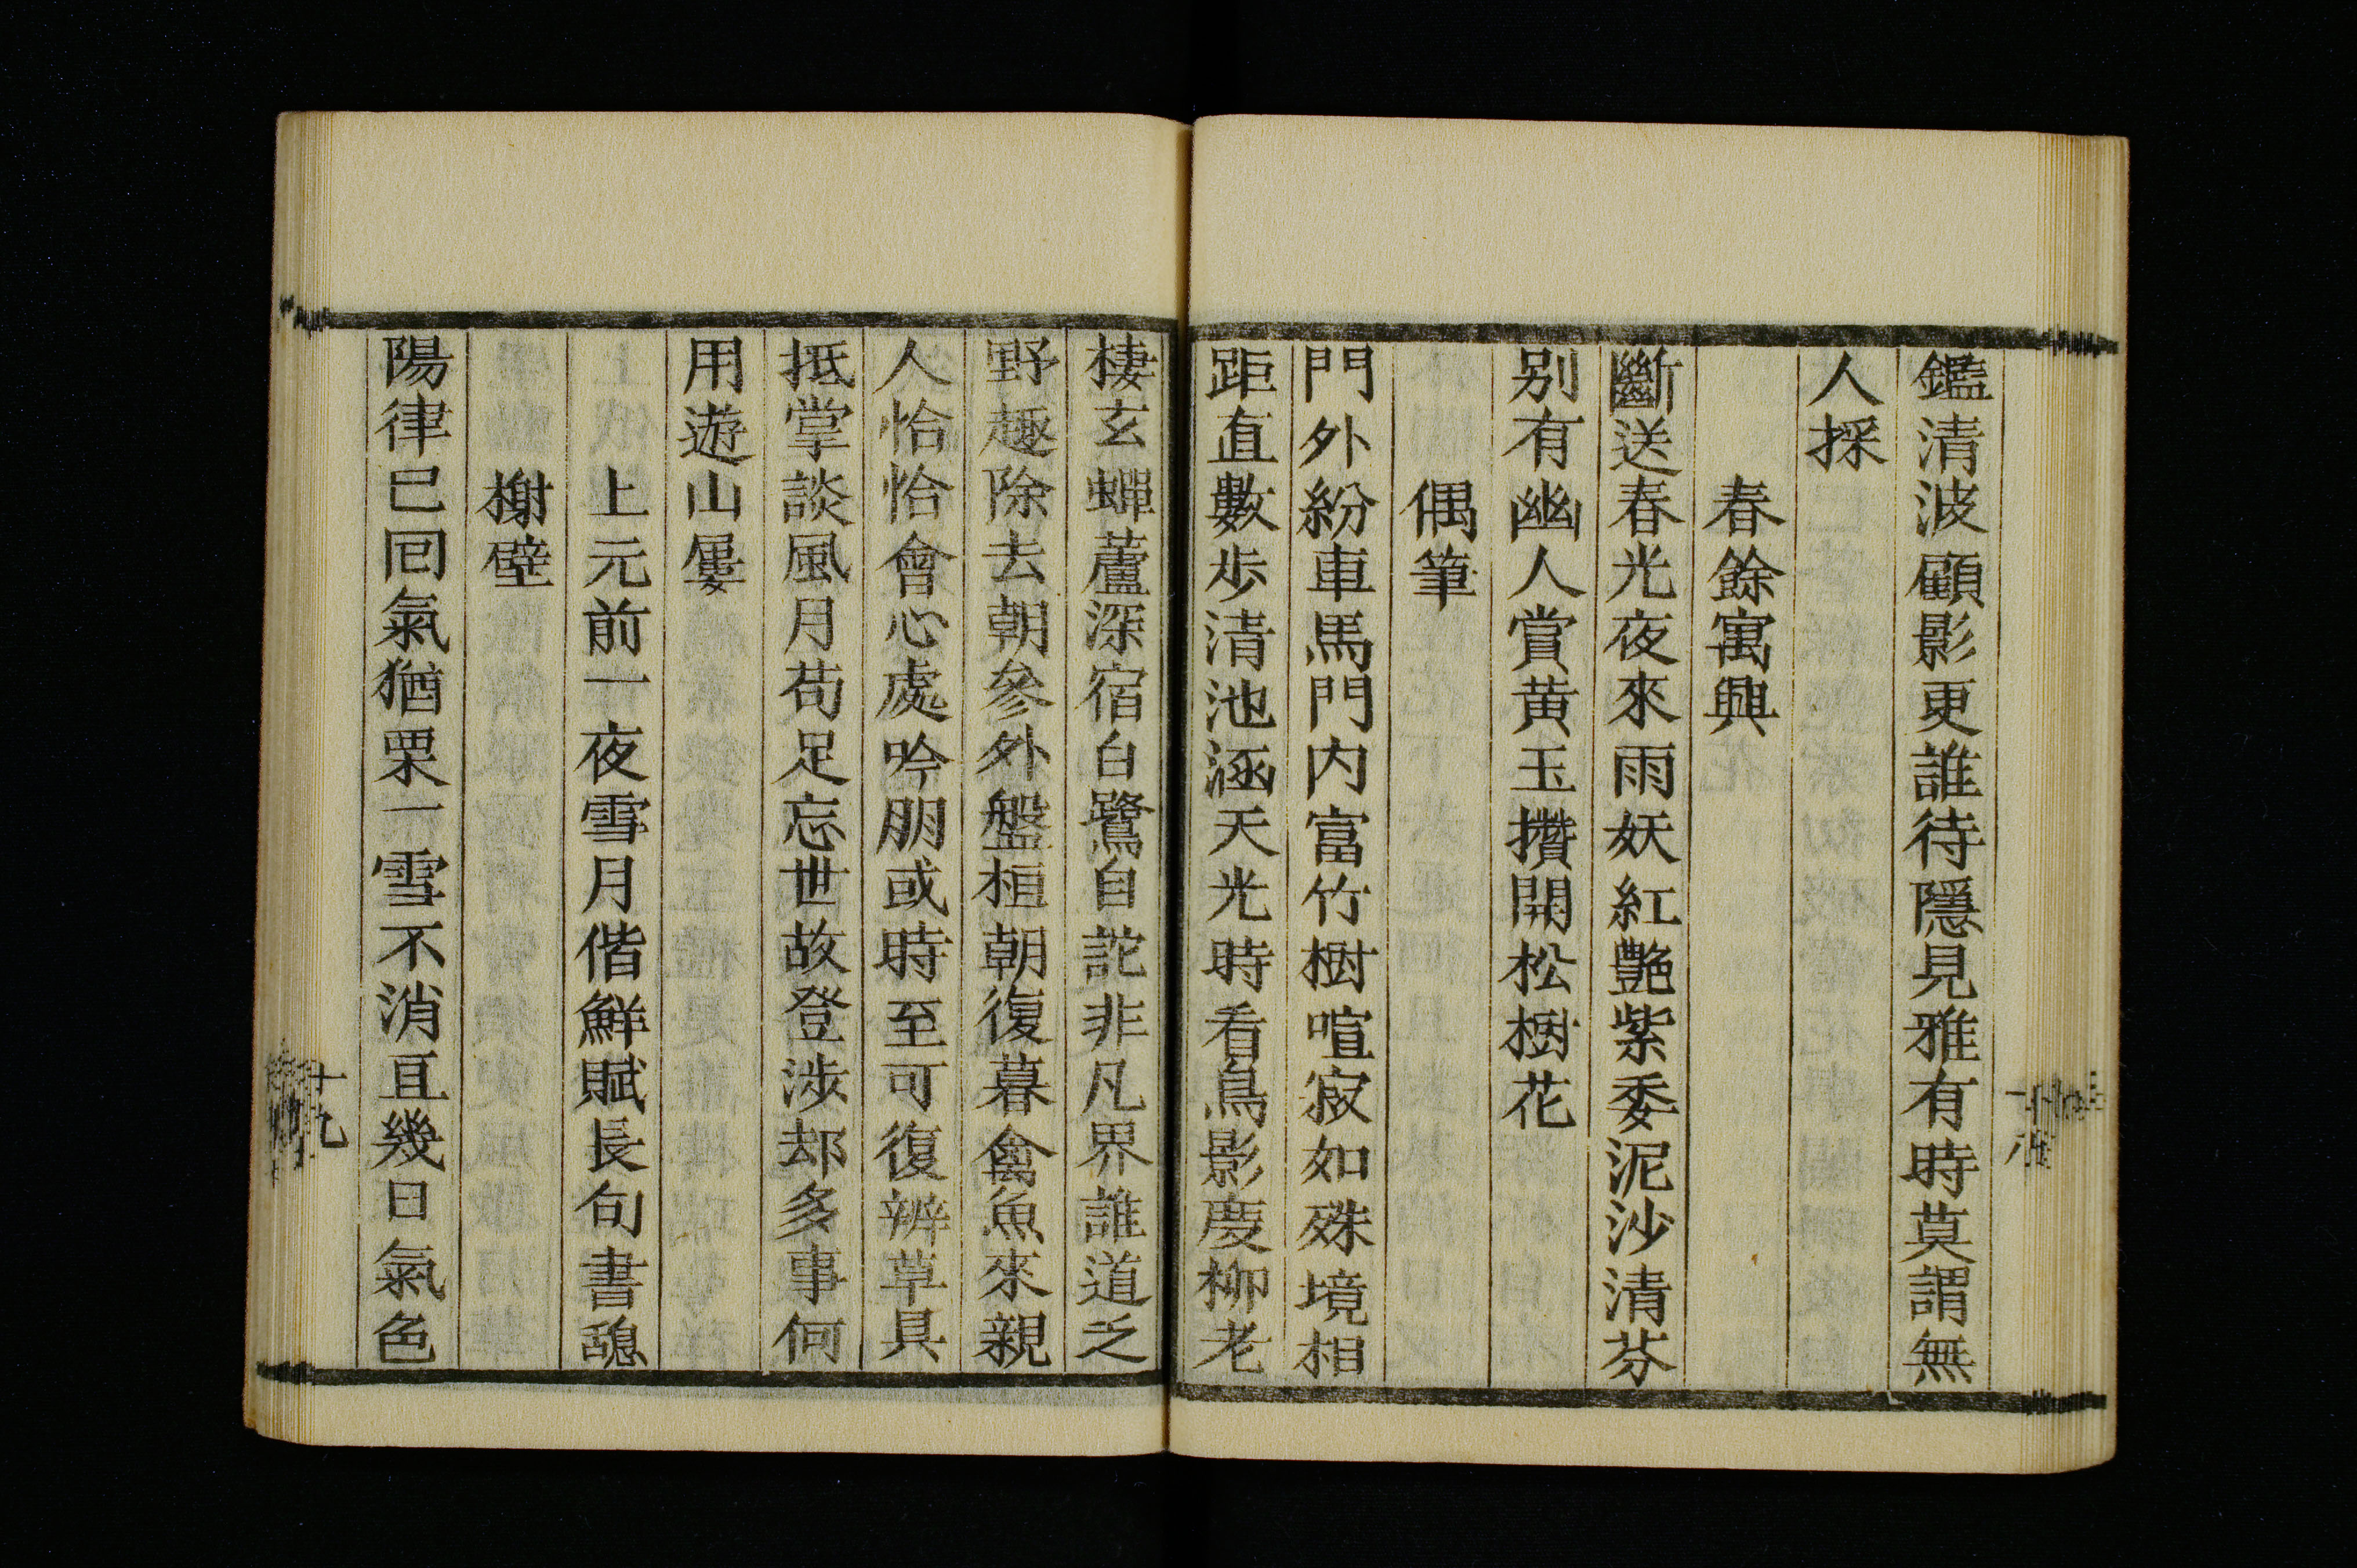 鑑清波顧影更誰待隱見雅有時莫謂無
人採
春餘寓興
斷送春光夜來雨妖紅艷紫委泥沙清芬
别有幽人賞黄玉攢開松樹花
偶筆
門外紛車馬門内富竹樹喧寂如殊境相
距直數歩清池涵天光時看鳥影慶柳老
棲玄蟬蘆深宿白鷺自詑非凡界誰道乏
野趣除去朝參外盤桓朝復暮禽魚來親
人恰恰會心處吟朋或時至可復辨草具
抵掌談風月苟足忘世故登涉却多事何
用遊山屢
上元前一夜雪月偕鮮賦長句書
榭壁
陽律已囘氣猶栗一雪不消亘幾日氣色
十八
十九